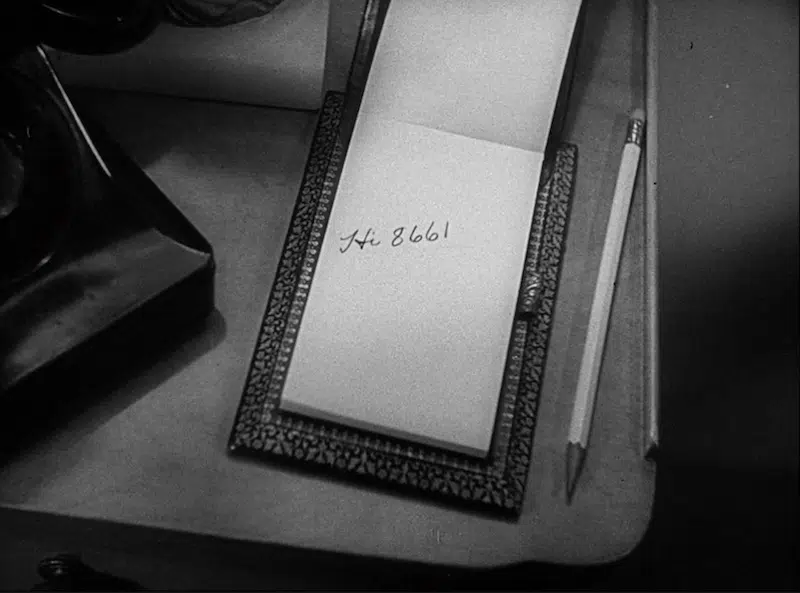 Hi 8661